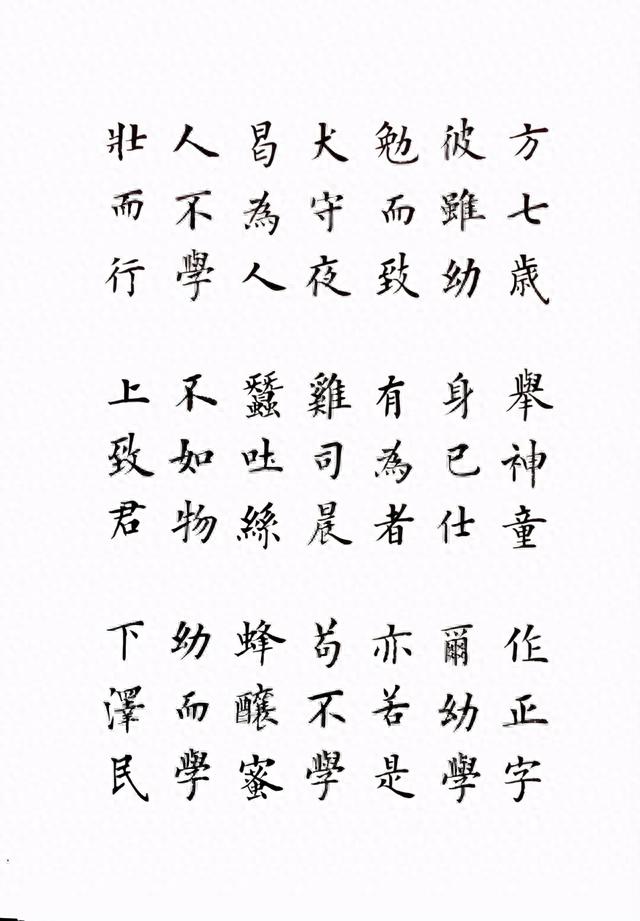 方七歳 舉神童 作正字
彼雖幼 身已仕 爾幼學
勉而致 有為者 亦若是
犬守夜 雞司晨 苟不學
曷為人 蠶吐絲 蜂釀蜜
人不學 不如物 幼而學
壯而行 上致君 下澤民